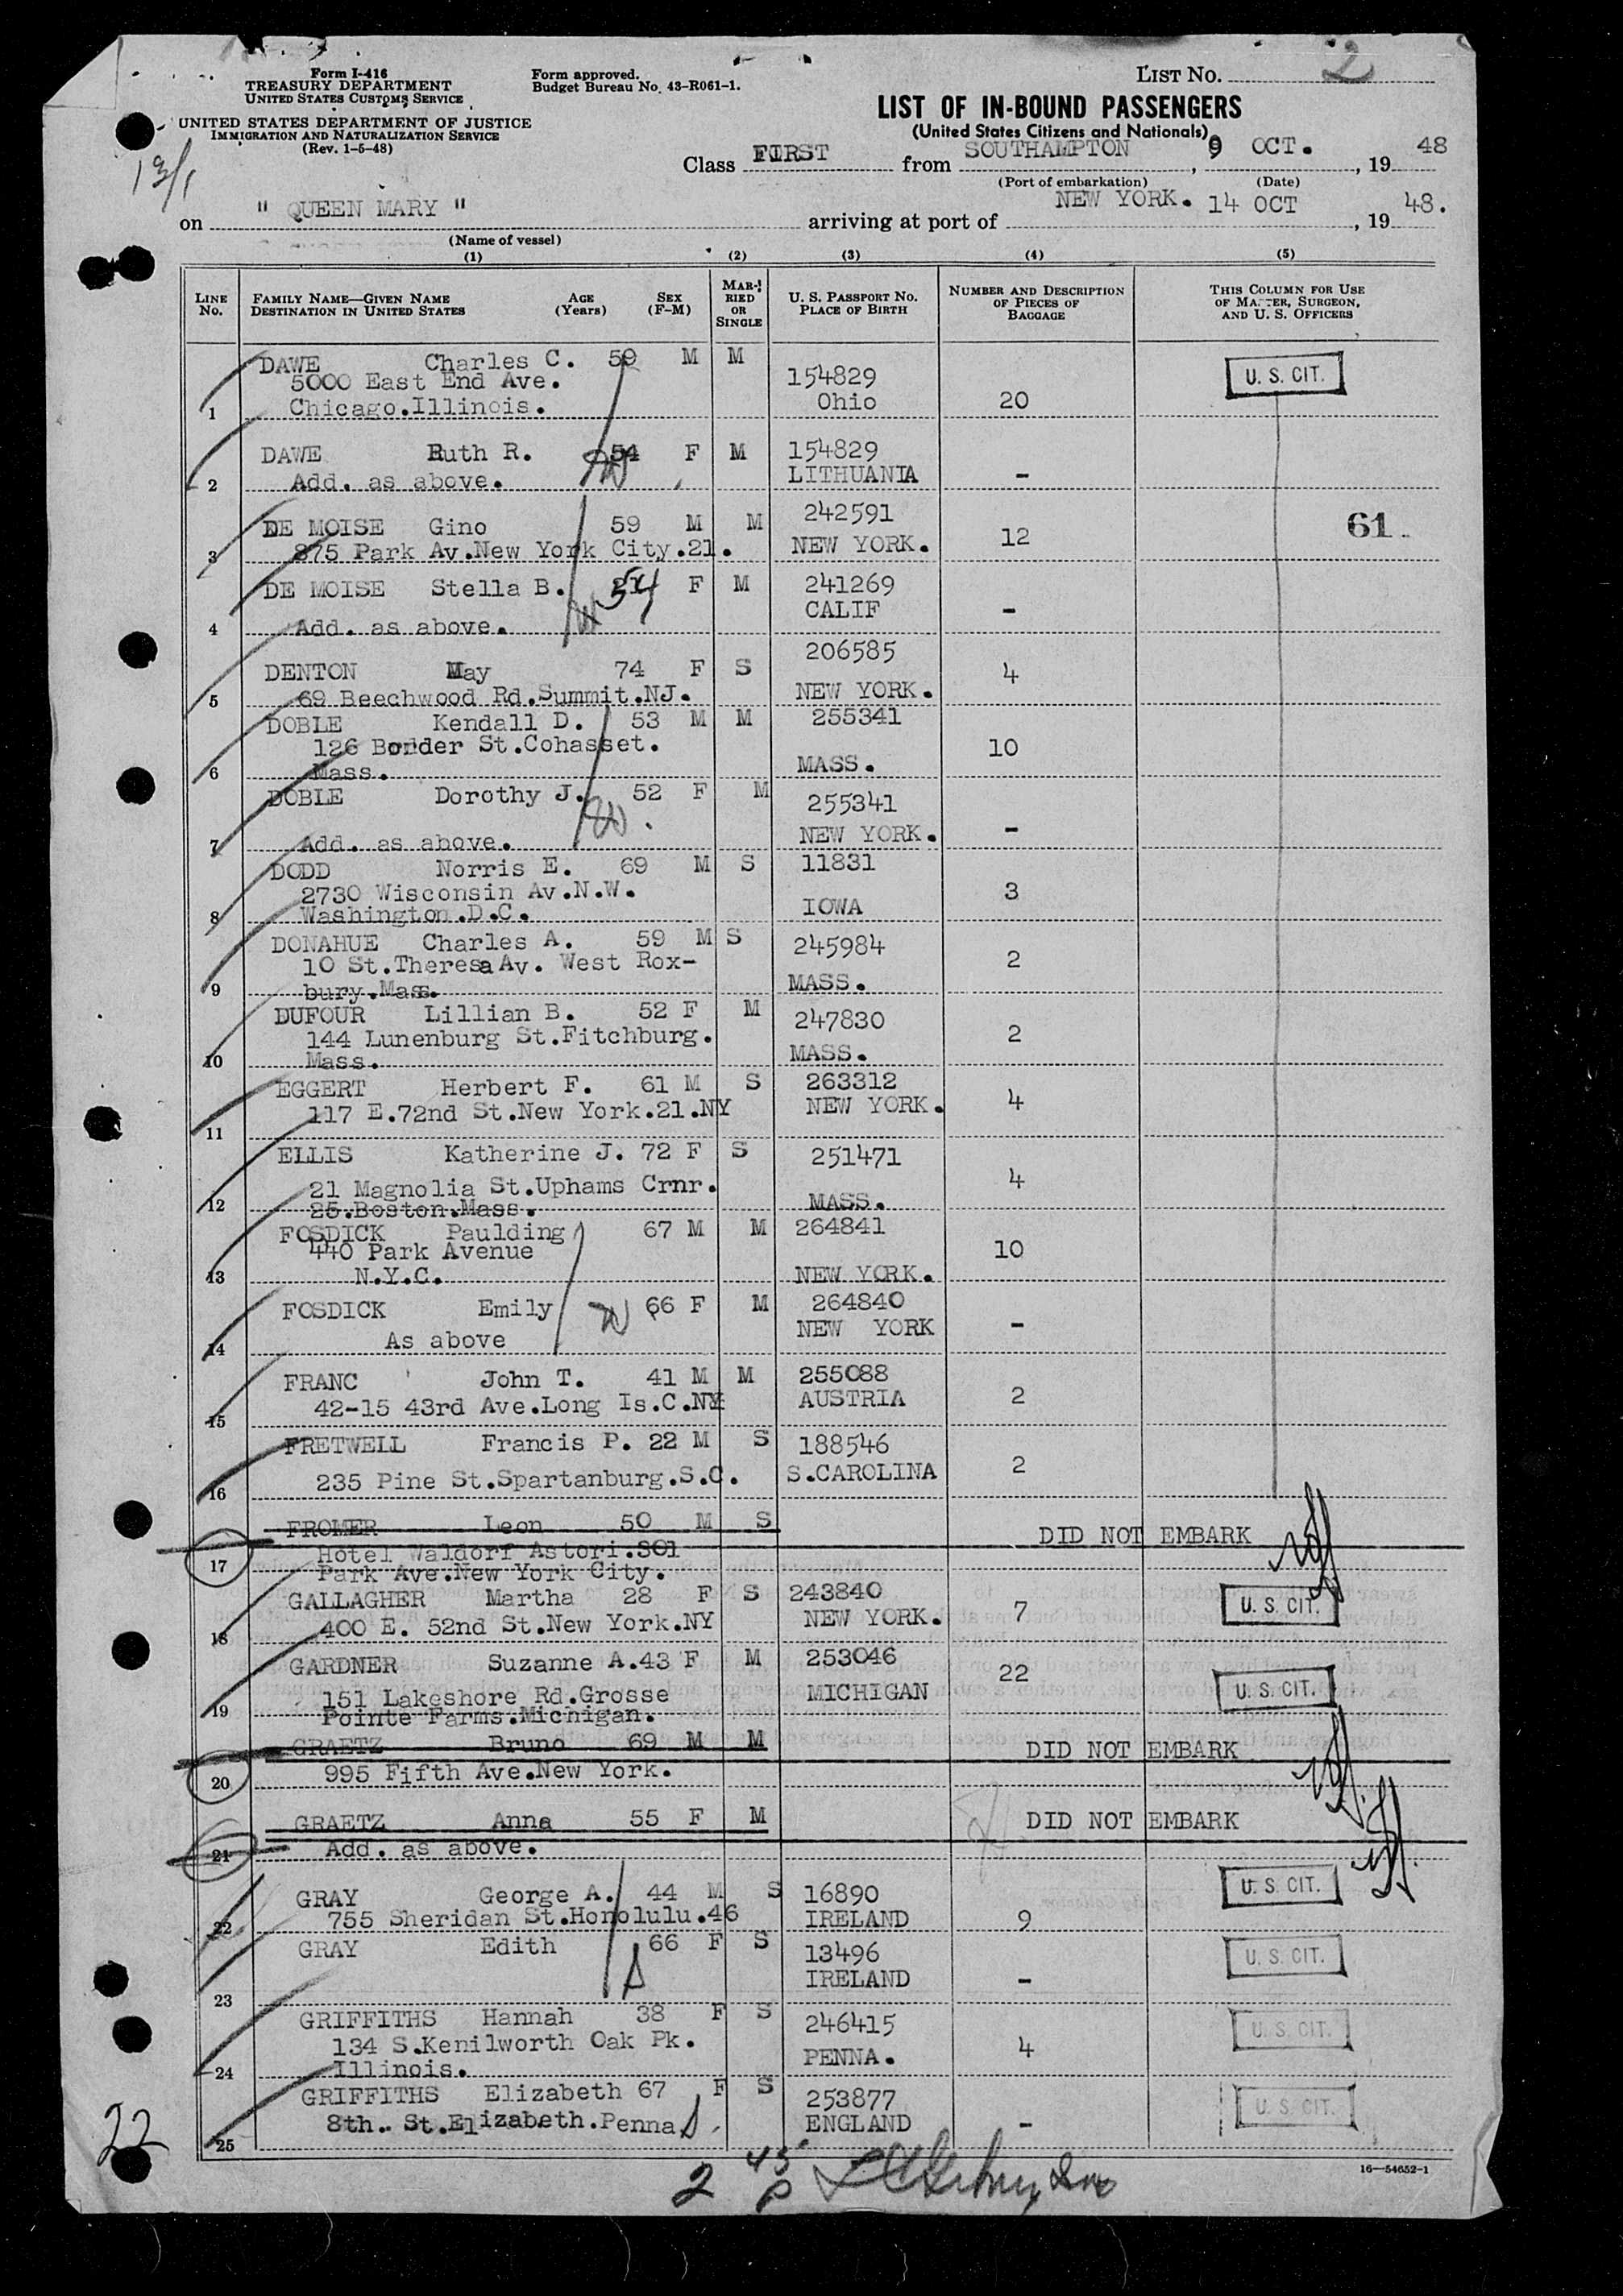 Form I-416
TREASURY DEPARTMENT
UNITED STATES CUSTOMS SERVICE
UNITED STATES DEPARTMENT OF JUSTICE
IMMIGRATION AND NATURALIZATION SERVICE
(Rev. 1-5-48)
Form approved.
Budget Bureau No. 43-R061-1.
LIST NO. 2
LIST OF IN-BOUND PASSENGERS
(United States Citizens and Nationals)
Class FIRST from SOUTHAMPTON, 9 OCT., 19 48
(Port of embarkation) (Date)
on " QUEEN MARY " arriving at port of NEW YORK. 14 OCT, 19 48.
(Name of vessel)
(1) (2) (3) (4) (5)
LINE No. FAMILY NAME—GIVEN NAME DESTINATION IN UNITED STATES AGE (Years) SEX (F-M) MARRIED OR SINGLE U. S. PASSPORT NO. PLACE OF BIRTH NUMBER AND DESCRIPTION OF PIECES OF BAGGAGE THIS COLUMN FOR USE OF MASTER, SURGEON, AND U. S. OFFICERS
DAWE Charles C. 59 M M 154829 U. S. CIT.
5000 East End Ave.
1 Chicago.Illinois. Ohio 20
DAWE Ruth R. 54 F M 154829
2 Add. as above. LITHUANIA -
DE MOISE Gino 59 M M 242591 61.
3 875 Park Av.New York City.21. NEW YORK. 12
DE MOISE Stella B. 54 F M 241269
4 Add. as above. CALIF -
DENTON May 74 F S 206585
5 69 Beechwood Rd.Summit.NJ. NEW YORK. 4
DOBLE Kendall D. 53 M M 255341
126 Border St.Cohasset. 10
6 Mass. MASS.
DOBLE Dorothy J. 52 F M 255341
7 Add. as above. NEW YORK. -
DODD Norris E. 69 M S 11831
2730 Wisconsin Av.N.W. 3
8 Washington.D.C. IOWA
DONAHUE Charles A. 59 M S 245984
10 St.Theresa Av. West Rox- 2
9 bury.Mass. MASS.
DUFOUR Lillian B. 52 F M 247830
144 Lunenburg St.Fitchburg. 2
10 Mass. MASS.
EGGERT Herbert F. 61 M S 263312
11 117 E.72nd St.New York.21.NY NEW YORK. 4
ELLIS Katherine J. 72 F S 251471
21 Magnolia St.Uphams Crnr. 4
12 25.Boston.Mass. MASS.
FOSDICK Paulding 67 M M 264841
440 Park Avenue 10
13 N.Y.C. NEW YORK.
FOSDICK Emily 66 F M 264840
14 As above NEW YORK -
FRANC John T. 41 M M 255088
15 42-15 43rd Ave.Long Is.C.NY AUSTRIA 2
FRETWELL Francis P. 22 M S 188546
16 235 Pine St.Spartanburg.S.C. S.CAROLINA 2
FROMER Leon 50 M S DID NOT EMBARK
17 Hotel Waldorf Astori.301
Park Ave.New York City.
GALLAGHER Martha 28 F S 243840 U. S. CIT.
18 400 E. 52nd St.New York.NY NEW YORK. 7
GARDNER Suzanne A.43 F M 253046 22
19 151 Lakeshore Rd.Grosse MICHIGAN U. S. CIT.
Pointe Farms.Michigan.
GRAETZ Bruno 69 M M DID NOT EMBARK
20 995 Fifth Ave.New York.
GRAETZ Anna 55 F M DID NOT EMBARK
21 Add. as above.
GRAY George A. 44 M S 16890 U. S. CIT.
22 755 Sheridan St.Honolulu.46 IRELAND 9
GRAY Edith 66 F S 13496 U. S. CIT.
23 IRELAND -
GRIFFITHS Hannah 38 F S 246415 U. S. CIT.
134 S.Kenilworth Oak Pk. 4
24 Illinois. PENNA.
GRIFFITHS Elizabeth 67 F S 253877 U. S. CIT.
25 8th. St.Elizabeth.Penna ENGLAND -
22
2 45
16—54652-1